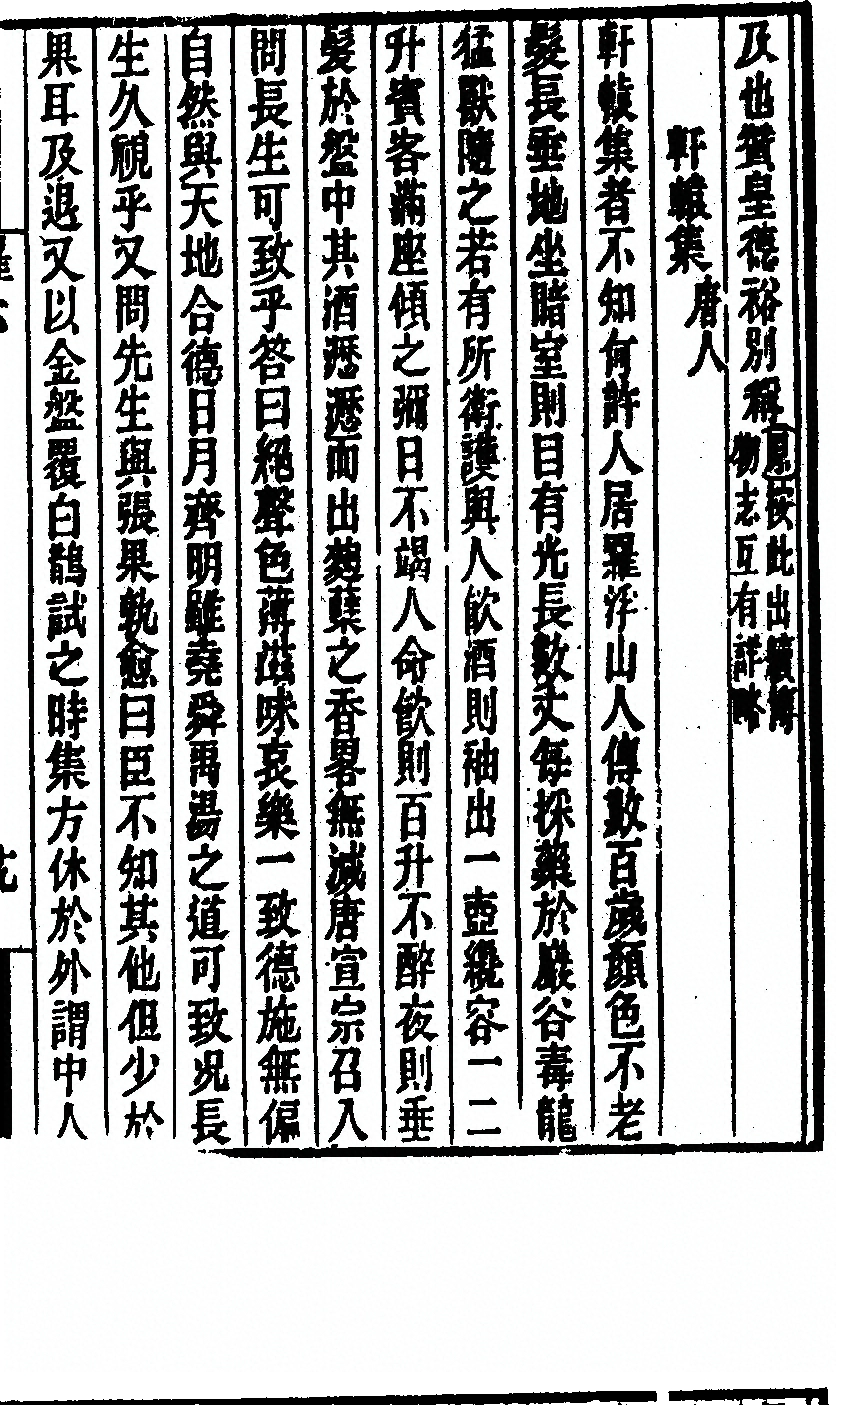 及也贊皇德裕別稱原按此出續博物志互有詳略
軒轅集唐人
軒轅集者不知何許人居羅浮山人傳數百歲顏色不老
髮長垂地坐暗室則目有光長數丈每採藥於巖谷毒龍
猛獸隨之若有所衛護與人飲酒則袖出一壺纔容一二
升賓客滿座傾之彌日不竭人命飲則百升不醉夜則垂
髮於盤中其酒瀝瀝而出麴櫱之香畧無減唐宣宗召入
問長生可致乎答曰絕聲色薄滋味哀樂一致德施無偏
自然與天地合德日月齊明雖堯舜禹湯之道可致况長
生久視乎又問先生與張果孰愈曰臣不知其他但少於
果耳及退又以金盤覆白鵲試之時集方休於外謂中人